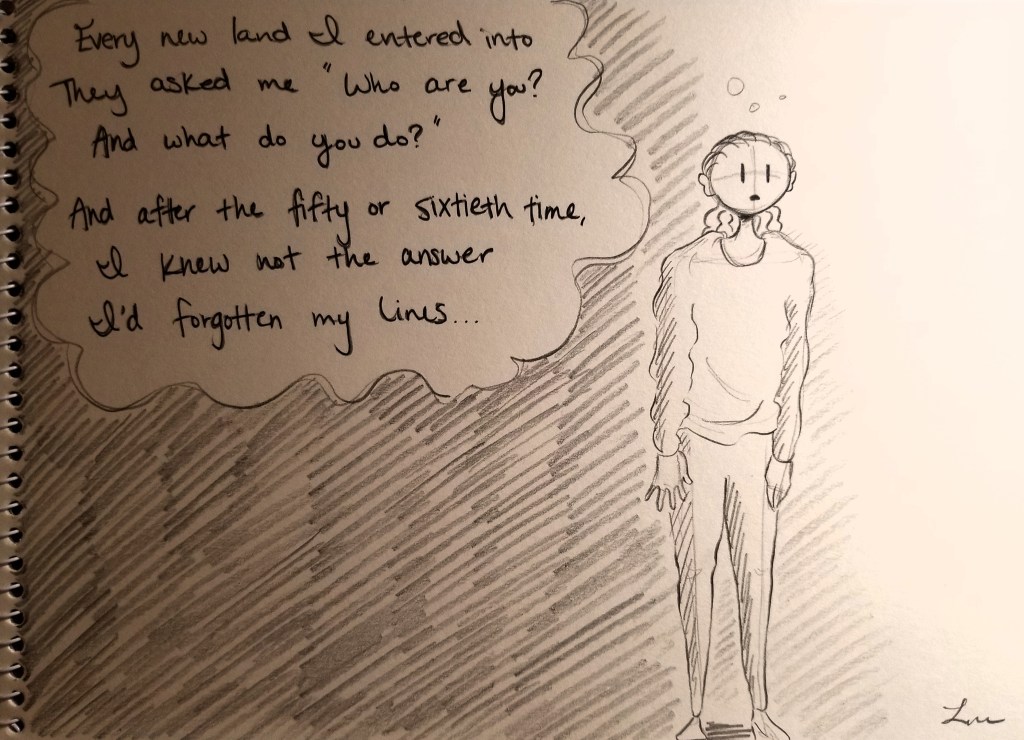 Every new land I entered into
They asked me "Who are you?
And what do you do?"
And after the fifty or sixtieth time,
I knew not the answer
I'd forgotten my lines...